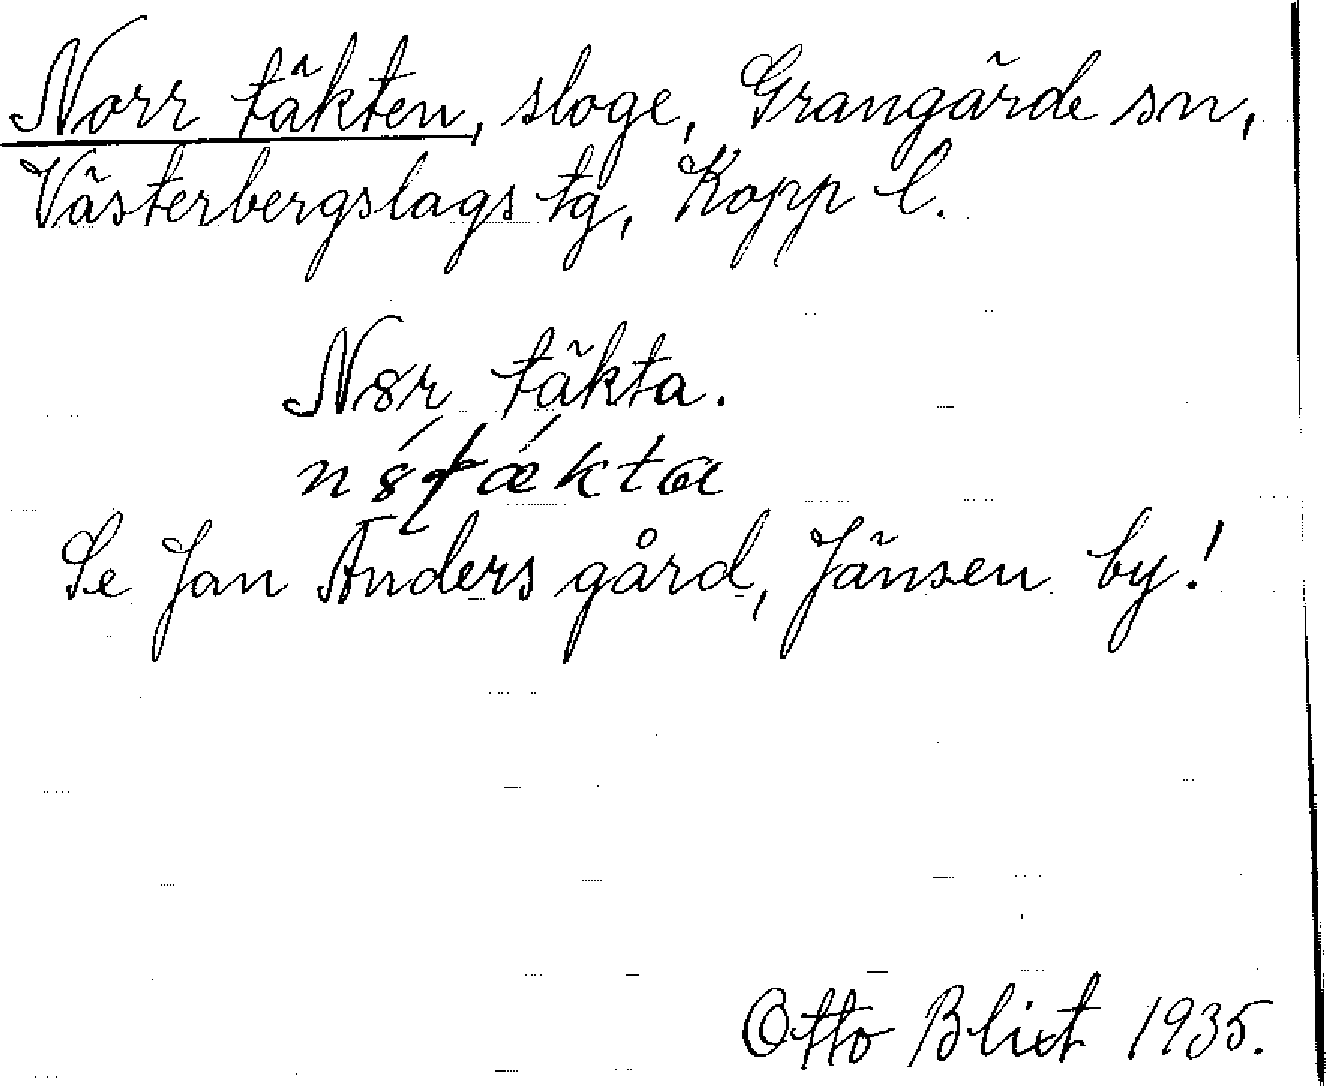 Norr täkten, sloge, Grangärde sn,
Västerbergslags tg, Kopp l.
Nȣr täkta.
Se Jan Anders gård, Jänsen by!
Otto Blixt 1935.